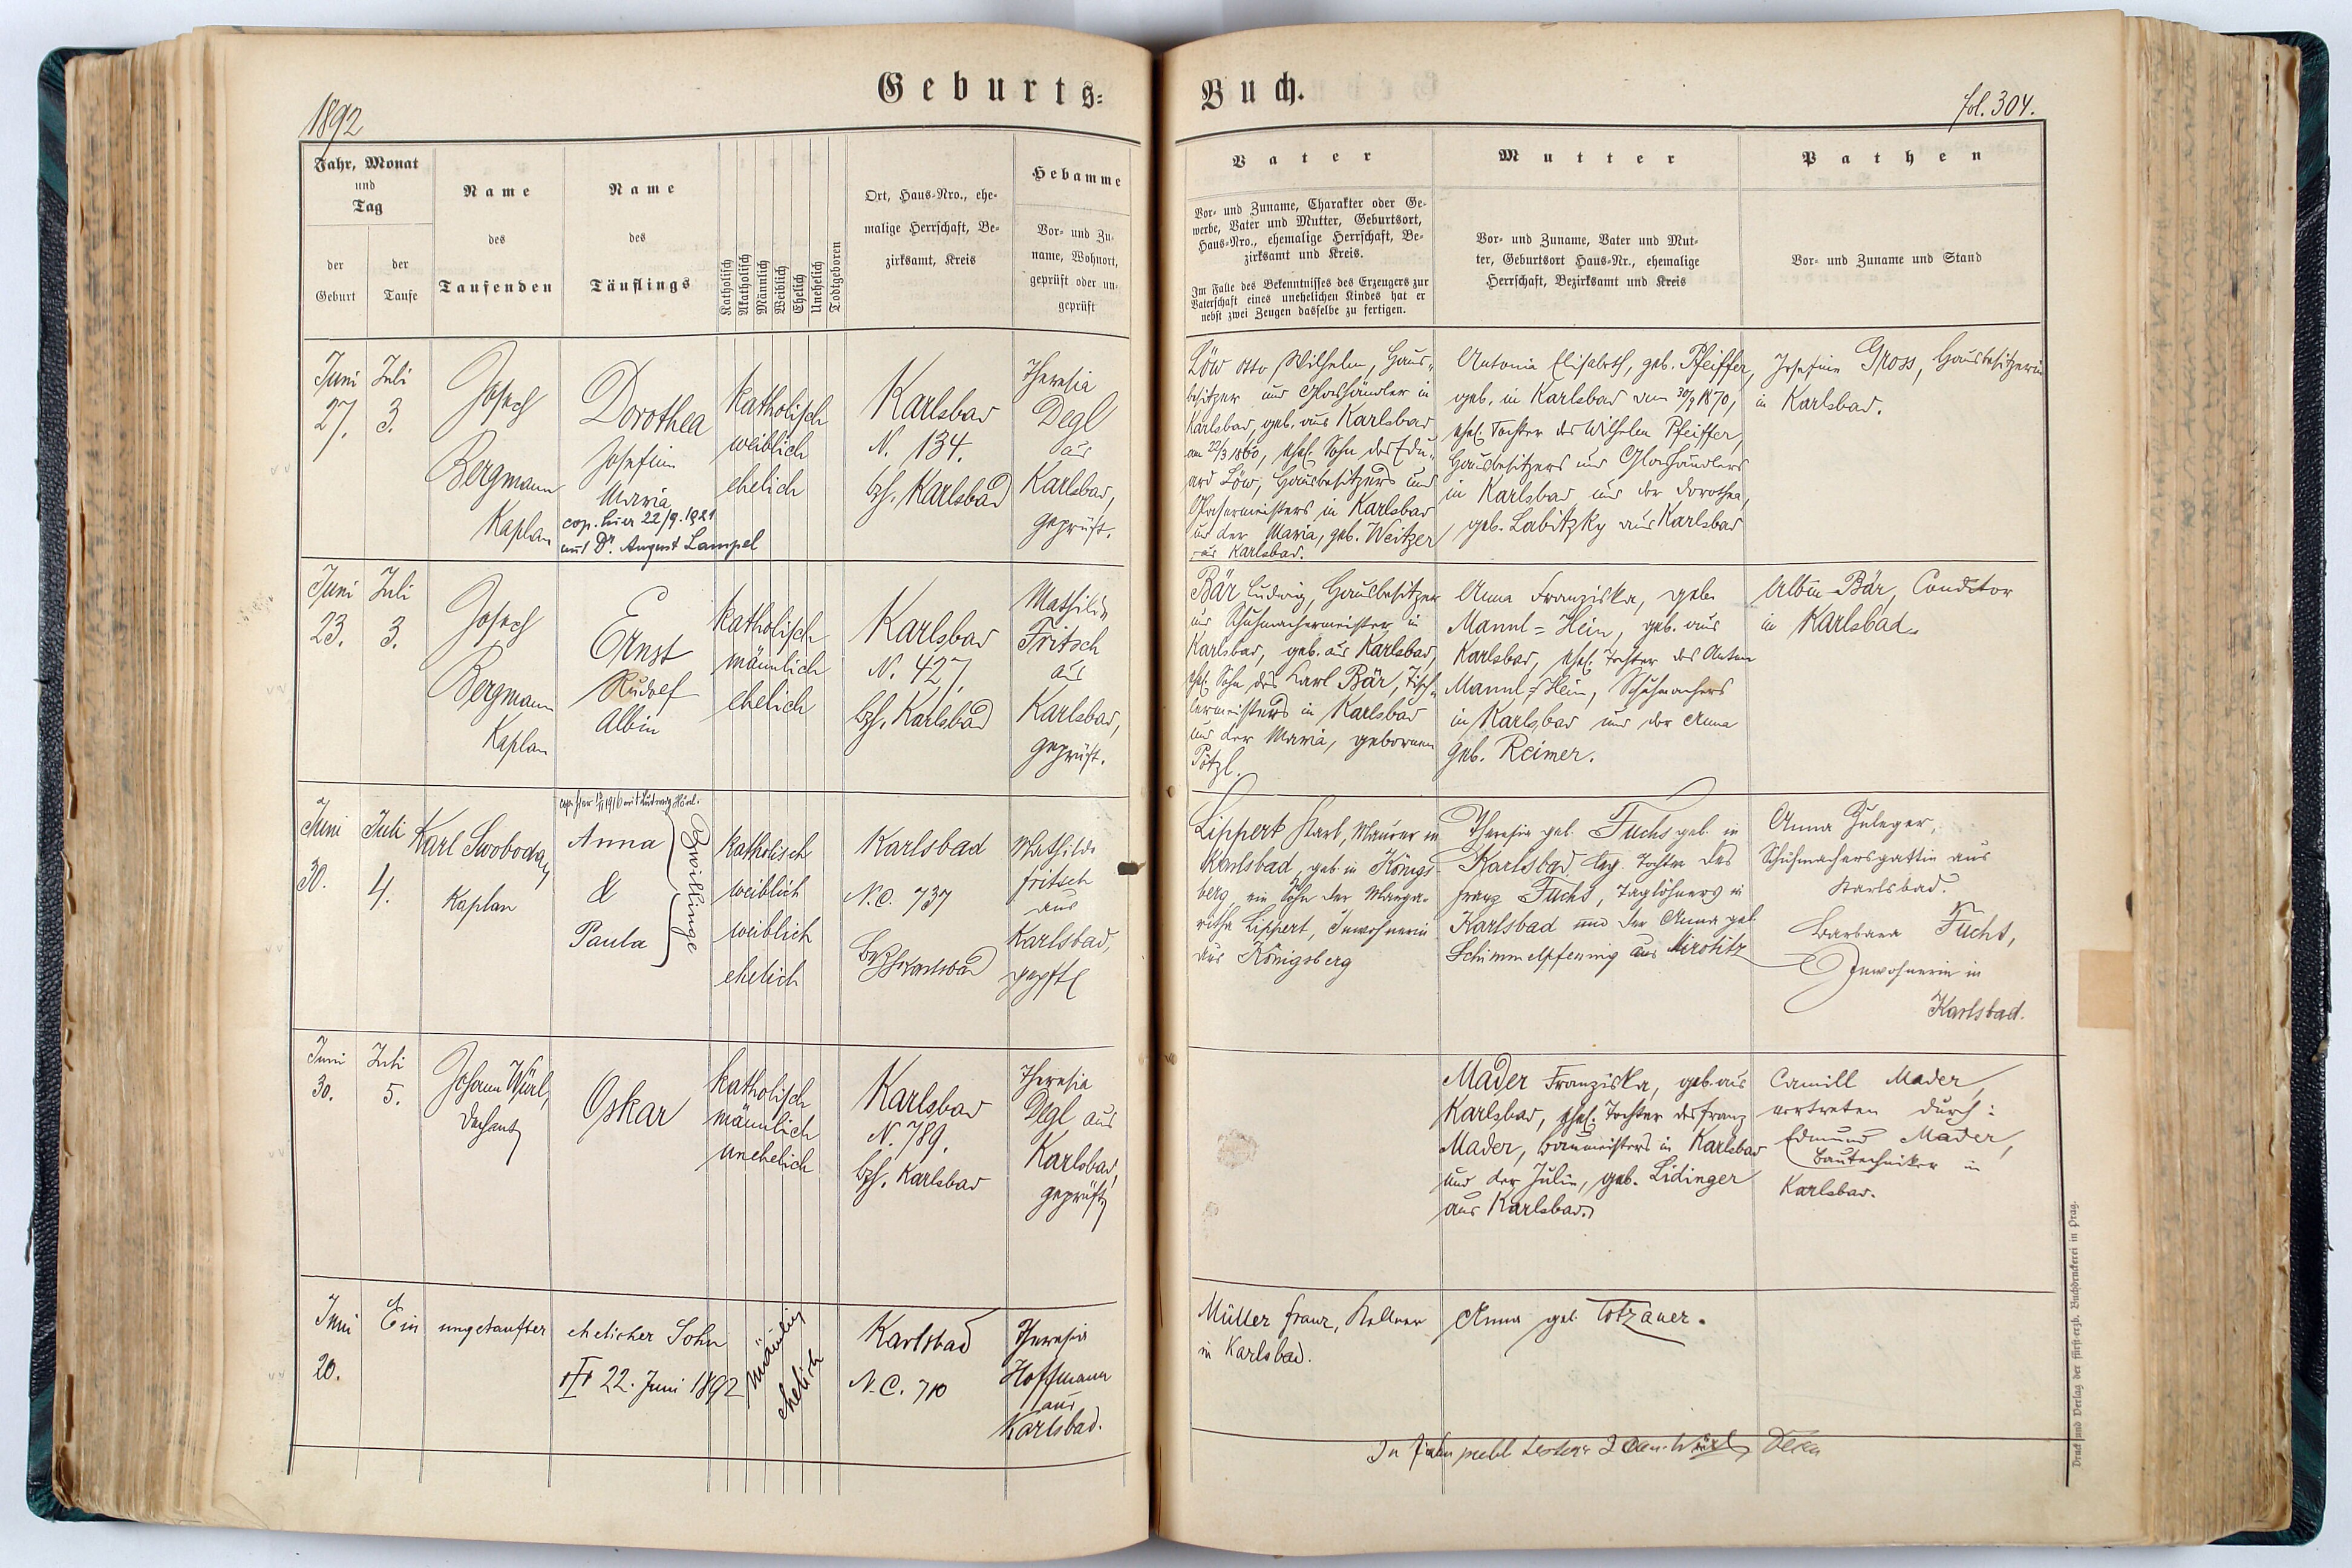 Geburts-
Buch.
1892
fol. 304.
Jahr, Monat
und
Tag
der
Geburt
der
Taufe
Name
des
Taufenden
Name
des
Täuflings
Katholisch
Akatholisch
Männlich
Weiblich
Ehelich
Unehelich
Todtgeboren
Ort, Haus-Nro., ehe-
malige Herrschaft, Be-
zirksamt, Kreis
Hebamme
Vor- und Zu-
name, Wohnort,
geprüft oder un-
geprüft
Vater
Vor- und Zuname, Charakter oder Ge-
werbe, Vater und Mutter, Geburtsort,
Haus-Nro., ehemalige Herrschaft, Be-
zirksamt und Kreis.
Im Falle des Bekenntnisses des Erzeugers zur
Vaterschaft eines unehelichen Kindes hat er
nebst zwei Zeugen dasselbe zu fertigen.
Mutter
Vor- und Zuname, Vater und Mut-
ter, Geburtsort Haus-Nr., ehemalige
Herrschaft, Bezirksamt und Kreis
Pathen
Vor- und Zuname und Stand
Juni
27.
Juli
3.
Josef
Bergmann
Kaplan
Dorothea
Josefine
Maria
cop. hier 22/9. 1921
mit Dr. August Lampel
katholisch
weiblich
ehelich
Karlsbad
N. 134.
bzh. Karlsbad
Theresia
Degl
aus
Karlsbad,
geprüft.
Löw Otto Wilhelm, Haus-
besitzer und Glashändler in
Karlsbad, geb. aus Karlsbad
am 22/3 1860, ehel. Sohn des Edu-
ard Löw, Hausbesitzers und
Glasermeisters in Karlsbad
und der Maria, geb. Weitzer
aus Karlsbad.
Antonia Elisabeth, geb. Pfeiffer,
geb. in Karlsbad am 30/9 1870,
ehel. Tochter des Wilhelm Pfeiffer,
Hausbesitzers und Glashändlers
in Karlsbad und der Dorothea,
geb. Labitzky aus Karlsbad
Josefine Gross, Hausbesitzerin
in Karlsbad.
Juni
23.
Juli
3.
Josef
Bergmann
Kaplan
Ernst
Rudolf
Albin
katholisch
männlich
ehelich
Karlsbad
N. 427.
bzh. Karlsbad
Mathilde
Fritsch
aus
Karlsbad,
geprüft.
Bär Ludwig, Hausbesitzer
und Schuhmachermeister in
Karlsbad, geb. aus Karlsbad,
ehel. Sohn des Karl Bär, Tisch-
lermeisters in Karlsbad
und der Maria, gebornen
Pötzl.
Anna Franziska, geb.
Mannl=Hein, geb. aus
Karlsbad, ehel. Tochter des Anton
Mannl=Hein, Schuhmachers
in Karlsbad und der Anna
geb. Reimer.
Albin Bär, Conditor
in Karlsbad.
Juni
30.
Juli
4.
Karl Swoboda
Kaplan
1916 mit Ludwig
Anna
&
Paula
Zwillinge
katholisch
weiblich
weiblich
ehelich
Karlsbad
N.C. 737
Bzh Karlsbad
Mathilde
Fritsch
aus
Karlsbad,
gepft
Lippert Karl, Maurer in
Karlsbad, geb. in Königs-
berg, ein Sohn der Marga-
retha Lippert, Inwohnerin
aus Königsberg
Theresia geb. Fuchs geb. in
Karlsbad Tochter des
Franz Fuchs, Taglöhners in
Karlsbad und der Anna geb.
Schimmelpfennig aus Mirotitz
Anna Zuleger,
Schuhmachersgattin aus
Karlsbad.
Barbara Fuchs,
Inwohnerin in
Karlsbad.
Juni
30.
Juli
5.
Johann Würl,
Dechant
Oskar
katholisch
männlich
unehelich
Karlsbad
N. 789.
bzh. Karlsbad
Theresia
Degl aus
Karlsbad,
geprüft
Mader Franziska, geb. aus
Karlsbad, ehel. Tochter des Franz
Mader, Baumeisters in Karlsbad
und der Julie, geb. Lidinger
aus Karlsbad.
Camill Mader,
vertreten durch:
Edmund Mader,
Bautechniker in
Karlsbad.
Juni
20.
Ein ungetaufter ehelicher Sohn
22. Juni 1892
männlich
ehelich
Karlsbad
N.C. 710
Theresia
Hoffmann
aus
Karlsbad.
Müller Franz, Kellner
in Karlsbad.
Anna geb. Totzauer.
Druck und Verlag der fürst-erzb. Buchdruckerei in Prag.